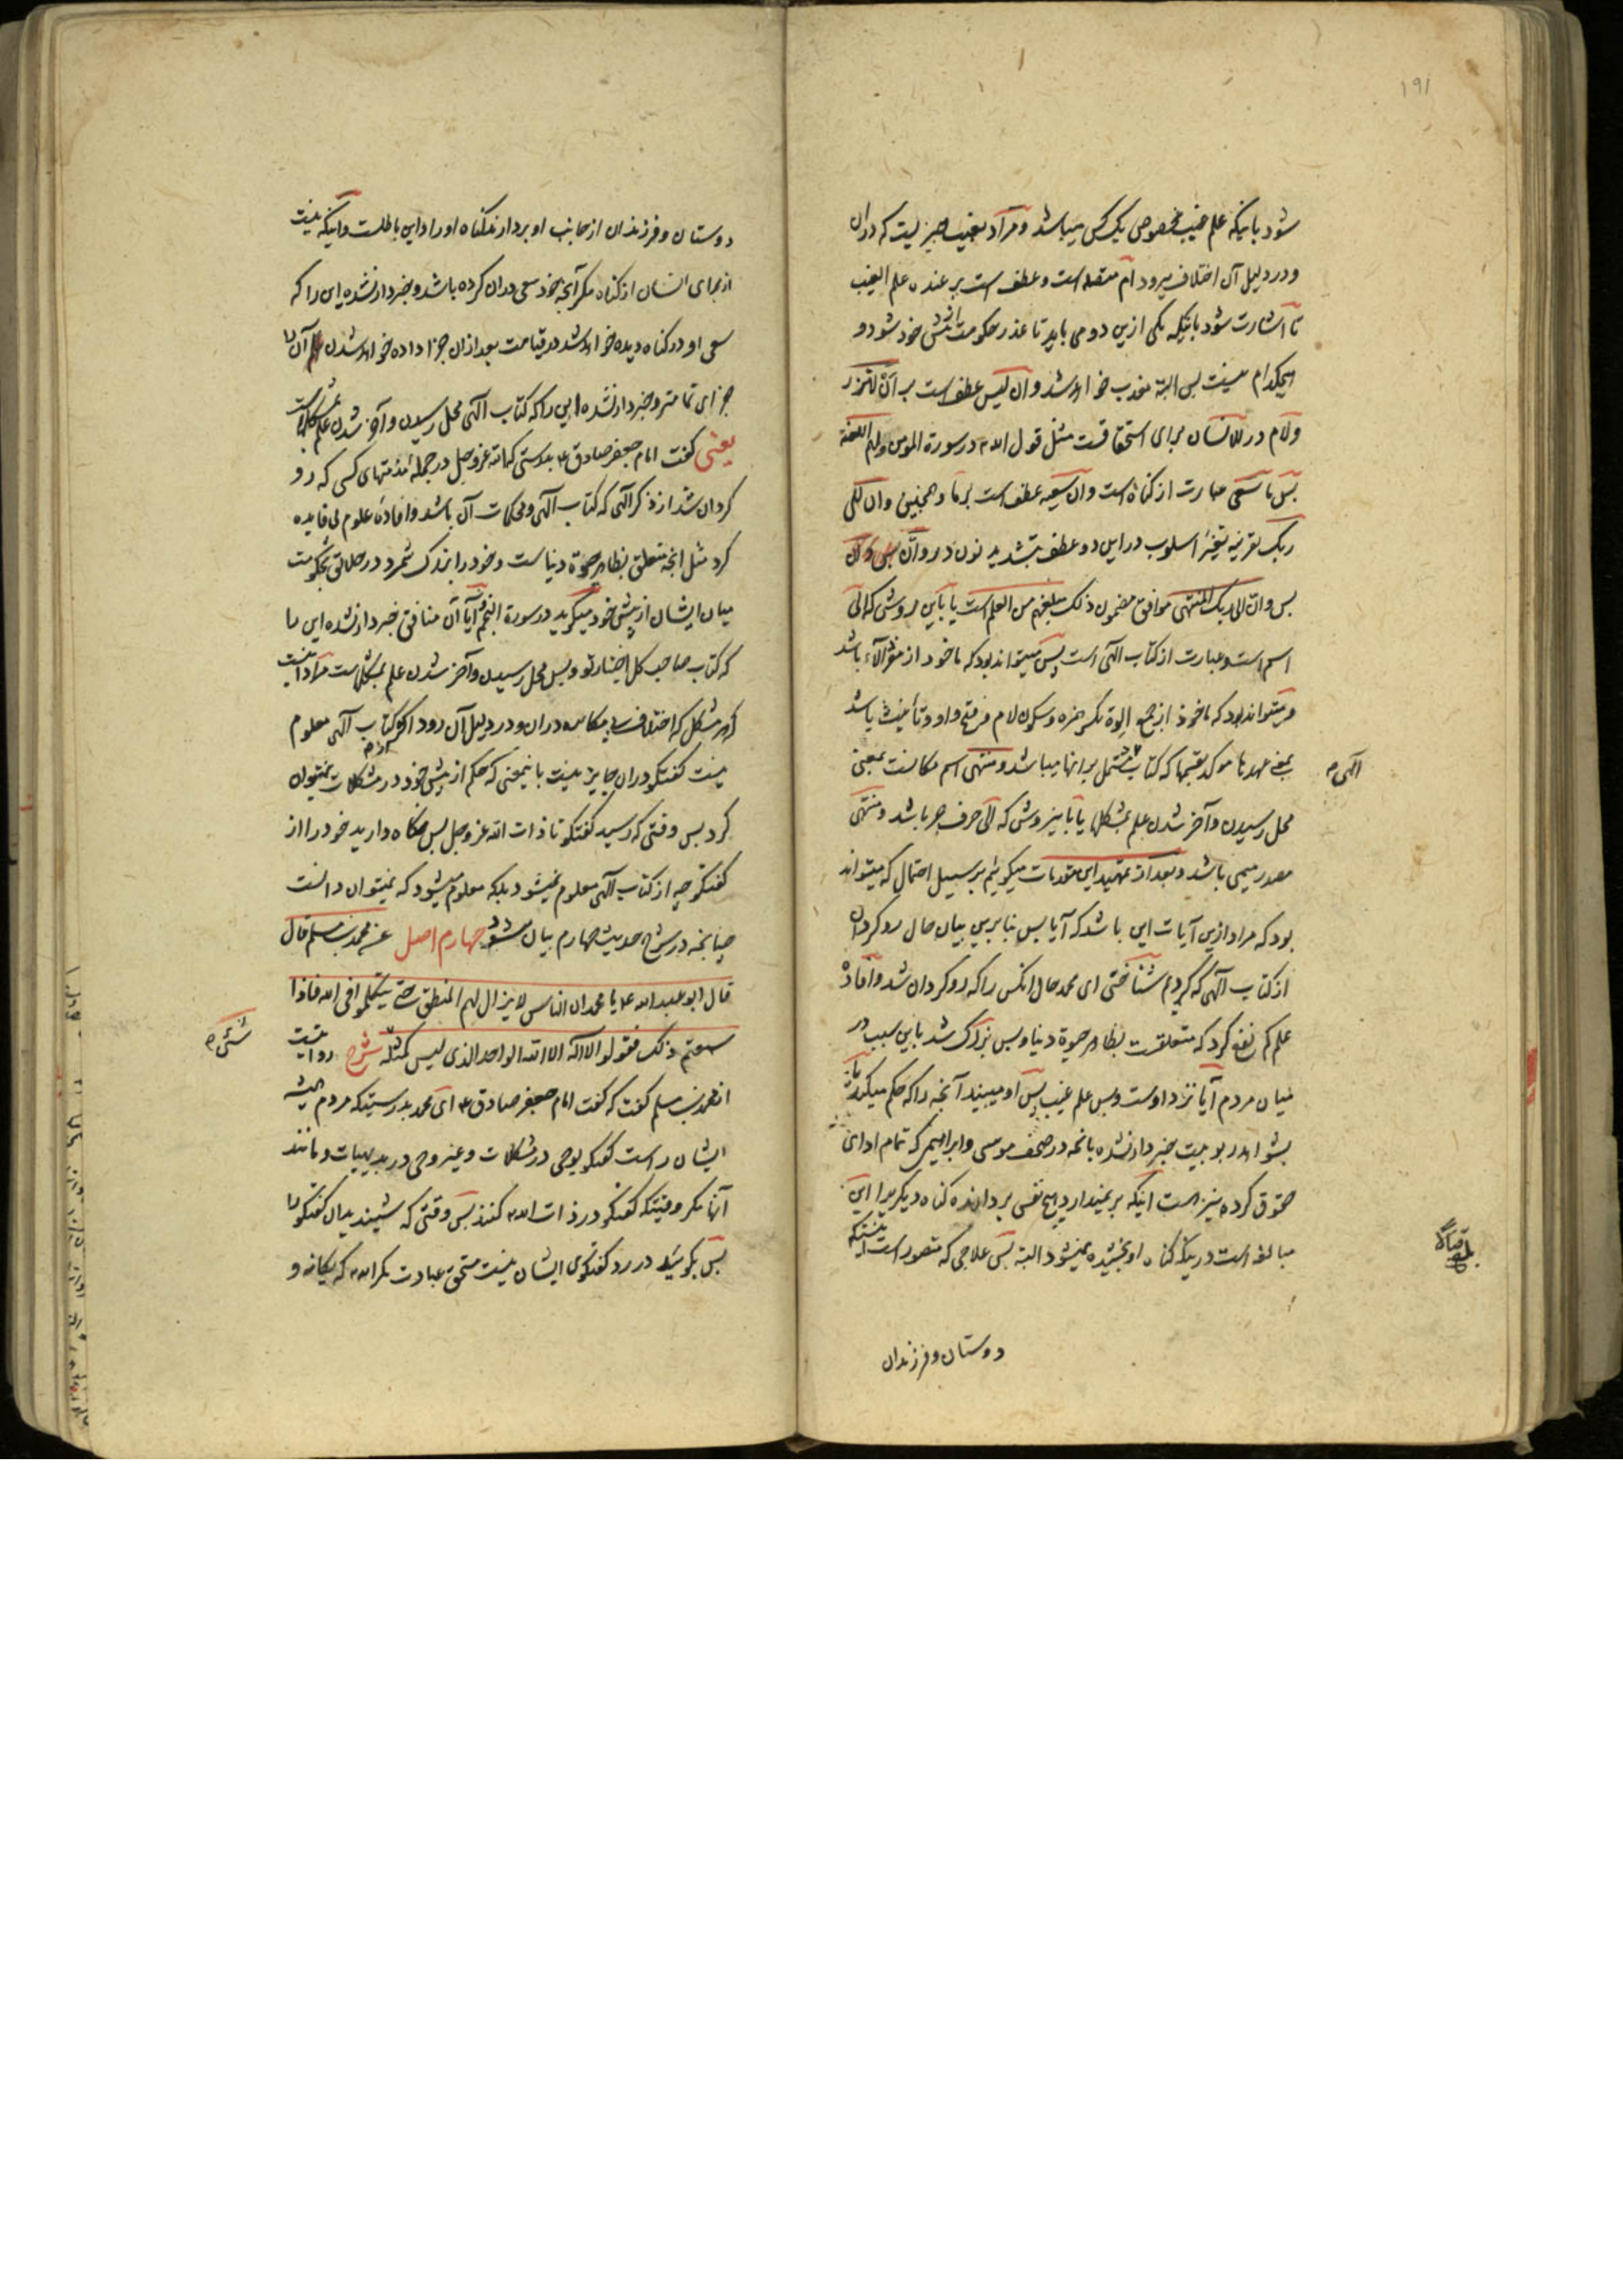 ۱۹۱
شود باینکه علم غیب مخصوص یک کس میباشد و مراد بغیب چیزیست که دران
و در دلیل آن اختلاف میرود ام متصله است و عطف است بر عنده علم الغیب
تا اشارت شود باینکه یکی ازین دو می باید تا عذر حکومت از پیش خود شود و
هیچکدام نیست پس البته معذب خواهد شد و ان لیس عطف است بر ان لا تزر
و لام در للانسان برای استحقاقست مثل قول الله در سورة المومن ولهم اللعنة
پس ما سعی عبارت از کناه است و ان سعیه عطف است بر ما و همچنین و ان الی
ربک بقرینه تغییر اسلوب در این دو عطف بتشدید نون در و انّ
پس و ان الی ربک المنتهی موافق مضمون ذلک مبلغهم من العلم است یا باین روش که الی
اسم است و عبارت از کتاب الهی است پس میتواند بود که ماخوذ از مفرد آلاء باشد
و میتواند بود که ماخوذ از جمع اِلوة بکسر همزه و سکون لام و فتح واو و تأنیث باشد
بمعنی عهدها موکد بقسمها که کتاب مشتمل بر انها میباشد و منتهی اسم مکانست بمعنی
الهی م
محل رسیدن و آخر شدن علم بمشکلها یا باینروش که الی حرف جر باشد و منتهی
مصدر میمی باشد و بعد از تمهید این مقدمات میکوئیم بر سبیل احتمال که میتواند
بود که مراد ازین آیات این باشد که آیا پس بنا برین بیان حال رو کردان
از کتاب الهی که کردیم شناختی ای محمد حال انکس را که رو کردان شد و افادهٔ
علم کم نفع کرد که متعلقست بظاهر حیوة دنیا و بس بزرک شد باین سبب در
میان مردم آیا نزد اوست و بس علم غیب پس او میبیند آنچه را که حکم میکند
بشواهد ربوبیت خبردار نشده بانچه در صحف موسی و ابراهیم که تمام ادای
حقوق کرده نیز هست اینکه بر نمیدارد هیچ نفس بردارنده کناه دیکریرا این
مبالغه است در ینکه کناه او بخشیده نمیشود البته پس علاجی که متصور است اینستکه
دوستان و فرزندان
دوستان و فرزندان از جانب او بردارند کناه او را و این باطلست و اینکه نیست
از برای انسان از کناه مکر آنچه خود سعی دران کرده باشد و خبردار نشده این را که
سعی او در کناه دیده خواهد شد در قیامت بعد ازان جزا داده خواهد شدن آن را
جزای تمامتر و خبردار نشده این را که کتاب الهی محل رسیدن و آخر شدن علم بمشکلهاست
یعنی گفت امام جعفر صادق ع بدرستی که الله عز و جل در جملهٔ مذمتهای کسی که رو
کردان شد از ذکر الهی که کتاب الهی و محکمات آن باشد و افادهٔ علوم بی فایده
کرد مثل انچه متعلق بظاهر حیوة دنیاست و خود را بزرک شمرد در خلائق بحکومت
میان ایشان از پیش خود میکوید در سورة النجم آیا آن منافق خبردار نشده این را
که کتاب صاحب کل اختیار تو و بس محل رسیدن و آخر شدن علم بمشکلهاست مراد اینست
که هر مشکل که اختلاف بی مکابره دران و در دلیل آن رود اکر از کتاب الهی معلوم
نیست کفتکو دران جایز نیست باینمعنی که حکم از پیش خود در مشکلات نمیتوان
کرد پس وقتی که رسید کفتکو تا ذات الله عز و جل پس نکاه دارید خود را از
کفتکو چه از کتاب الهی معلوم نمیشود بلکه معلوم میشود که نمیتوان دانست
چنانچه در شرح حدیث چهارم بیان میشود چهارم اصل عن محمد بن مسلم قال
قال ابو عبد الله ع یا محمد ان الناس لا یزال لهم المنطق حتی یتکلموا فی الله فاذا
سمعتم ذلک فقولوا لا اله الا الله الواحد الذی لیس کمثله شرح روایتست
شئ م
از محمد بن مسلم کفت که کفت امام جعفر صادق ع ای محمد بدرستیکه مردم همیشه
ایشان راست کفتکو بوحی در مشکلات و غیر وحی در بدیهیات و مانند
آنها مکر وقتیکه کفتکو در ذات الله کنند پس وقتی که شنیدید ان کفتکو را
پس بکوئید در رد کفتکوی ایشان نیست مستحق عبادت مکر الله که یکانه و